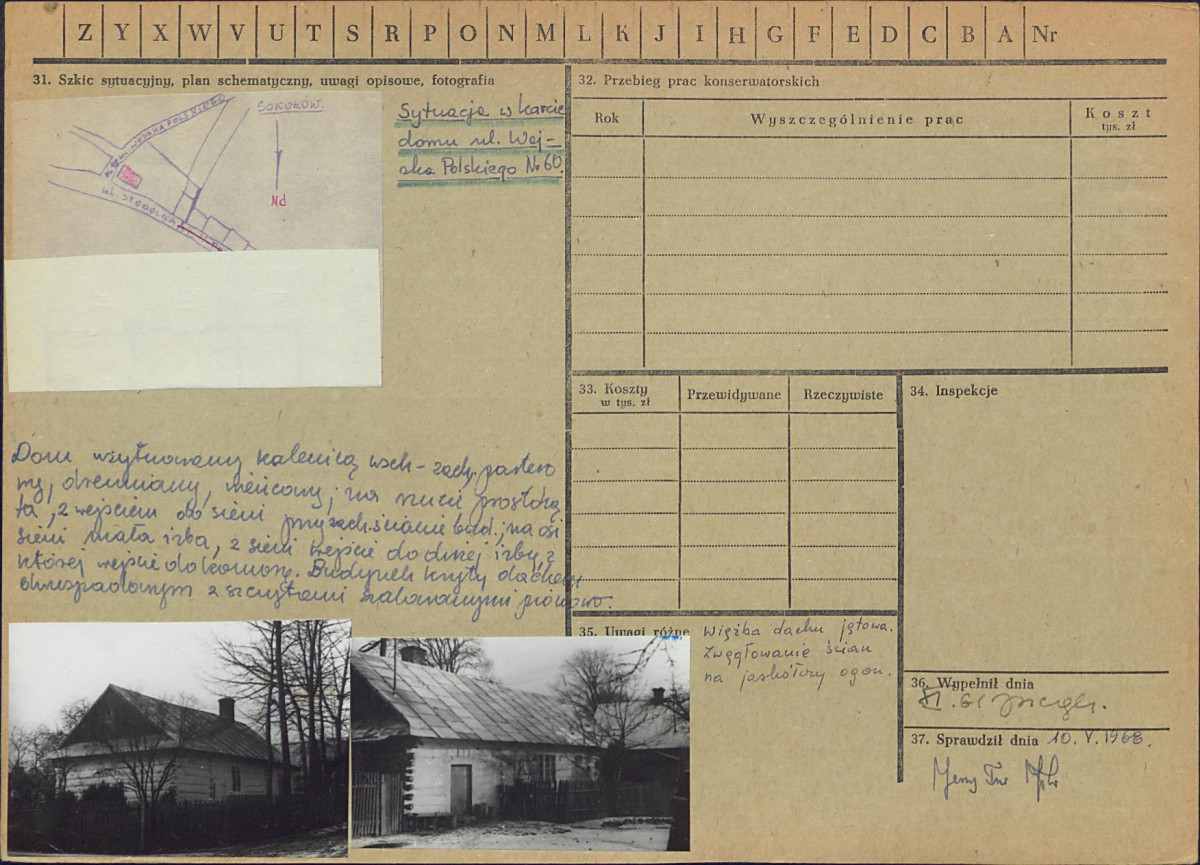 Z Y X W V U T S R P O N M L K J I H G F E D C B A Nr
31. Szkic sytuacyjny, plan schematyczny, uwagi opisowe, fotografia
SOKOŁÓW
UL. WOJSKA POLSKIEGO
ul. STODOLNA
Nd
Sytuacja w karcie
domu ul. Woj-
ska Polskiego No 60.
Dom usytuowany kalenicą wsch-zach, partero
wy, drewniany, wieńcowy; na rzucie prostoką
ta, z wejściem do sieni przy zach. ścianie bud.; na osi
sieni mała izba, z sieni wejście do dużej izby, z
której wejście do komory. Budynek kryty dachem
dwuspadowym z szczytami szalowanymi pionowo.
32. Przebieg prac konserwatorskich
Rok
Wyszczególnienie prac
Koszt
tys. zł
33. Koszty
w tys. zł
Przewidywane
Rzeczywiste
34. Inspekcje
35. Uwagi różne
Więźba dachu jętowa.
Zwęgłowanie ścian
na jaskółczy ogon.
36. Wypełnił dnia
37. Sprawdził dnia 10.V.1968.